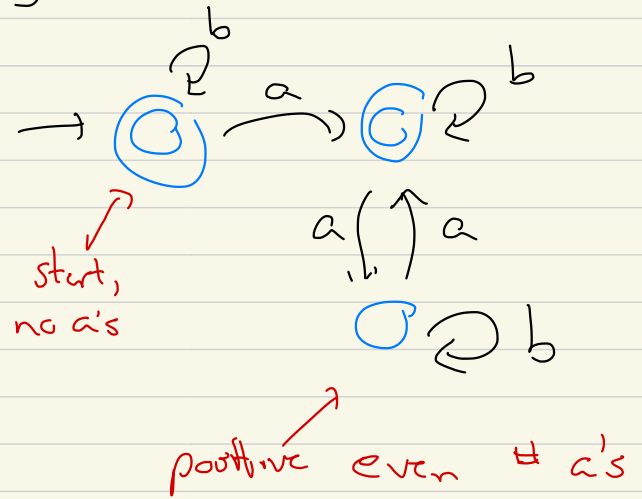 b
a
b
a
a
start,
no a's
b
positive even # a's